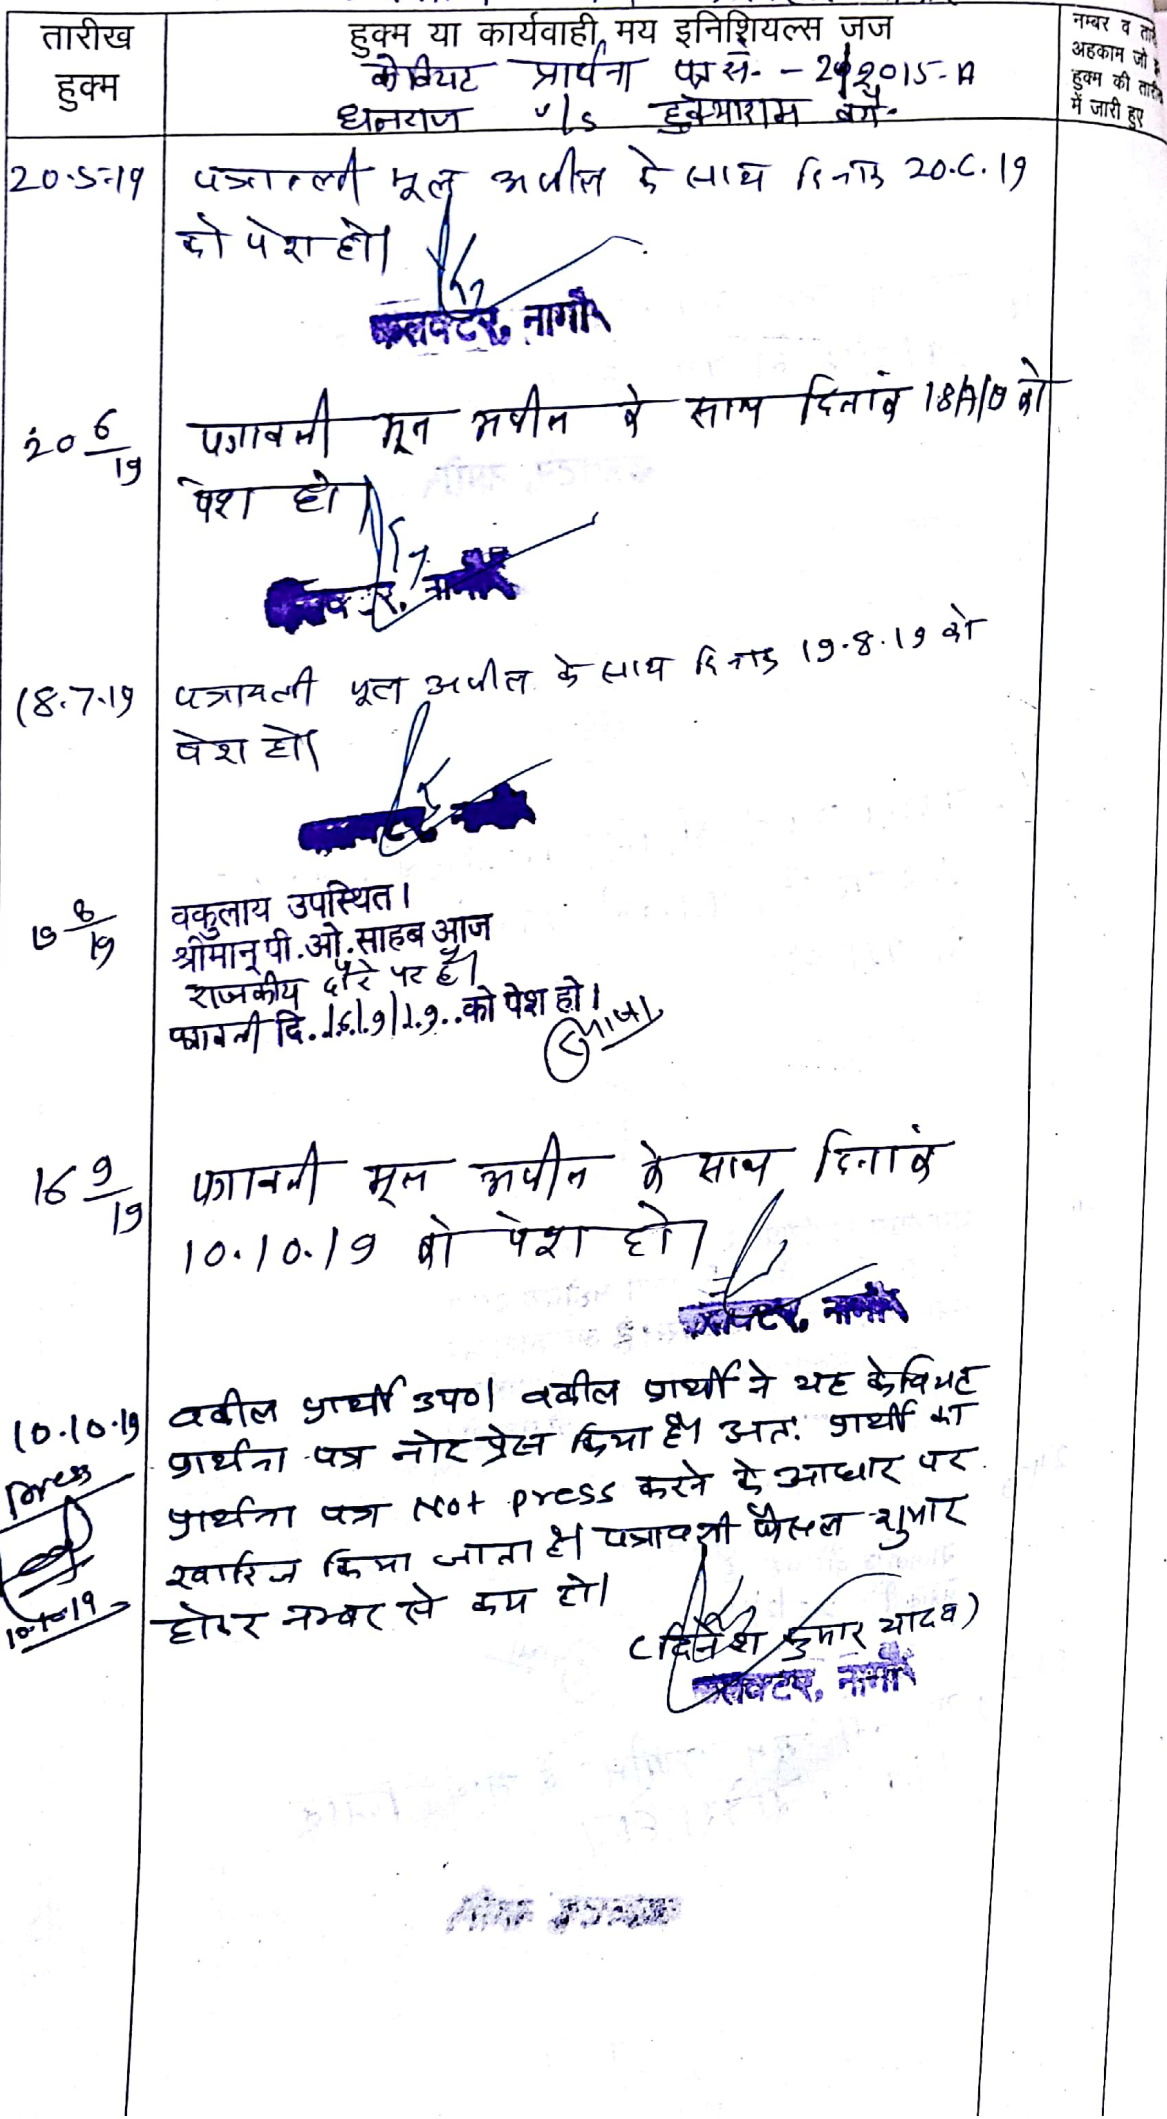 तारीख
हुक्म
हुक्म या कार्यवाही मय इनिशियल्स जज
नम्बर व
अहकाम जो
हुक्म की
में जारी हुए
केवियट प्रार्थना पत्र सं.- 2015-A
धनराज v/s हुक्माराम वगै.
20.5.19
पत्रावली मूल अपील के साथ दिनांक 20.6.19
को पेश हो।
कलक्टर, नागौर
20 6/19
पत्रावली मूल अपील के साथ दिनांक को
पेश हो।
18.7.19
पत्रावली मूल अपील के साथ दिनांक 19.8.19 को
पेश हो।
19 8/19
वकुलाय उपस्थित।
श्रीमान् पी.ओ.साहब आज
राजकीय दौरे पर है।
पत्रावली दि. 16/9/19 को पेश हो।
16 9/19
पत्रावली मूल अपील के साथ दिनांक
10.10.19 को पेश हो।
कलक्टर, नागौर
10.10.19
वकील प्रार्थी उप०। वकील प्रार्थी ने यह केवियट
प्रार्थना पत्र नोट प्रेस किया है। अतः प्रार्थी का
प्रार्थना पत्र Not press करने के आधार पर
खारिज किया जाता है। पत्रावली फैसल शुमार
होकर नम्बर से कम हो।
press
10-10-19
(दिनेश कुमार यादव)
कलक्टर, नागौर